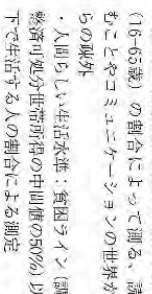 (16-65歳) の割合によって測る、読
むことやコミュニケーションの世界か
らの疎外
・人間らしい生活水準：貧困ライン (調
整済可処分世帯所得の中間値の50%) 以
下で生活する人の割合による測定